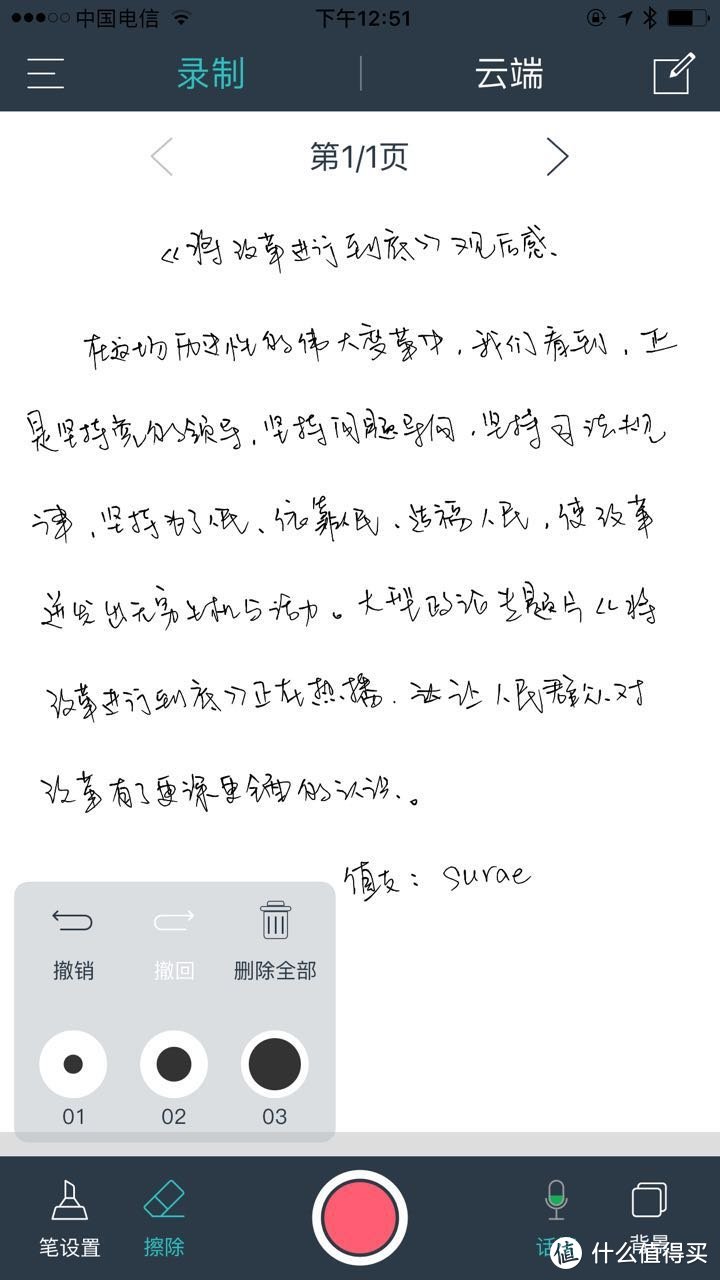 中国电信 下午12:51
录制 云端
第1/1页
《将改革进行到底》观后感、
在这场历史性的伟大变革中，我们看到，正
是坚持党的领导，坚持问题导向，坚持司法规
律，坚持为了人民、依靠人民、造福人民，使改革
迸发出无穷生机与活力。大型政论专题片《将
改革进行到底》正在热播，让人民群众对
改革有了更深更全面的认识、。
值友：surae
撤销 撤回 删除全部
01 02 03
笔设置 擦除 话 背景
值 什么值得买